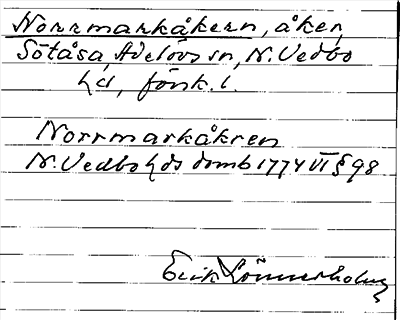 Norrmarkåkern, åker,
Sötåsa, Adelövs sn, N. Vedbo
hd, Jönk. l.
Norrmarkåkren
N. Vedbo hds domb 1774 VI § 98
Erik Lönnerholm